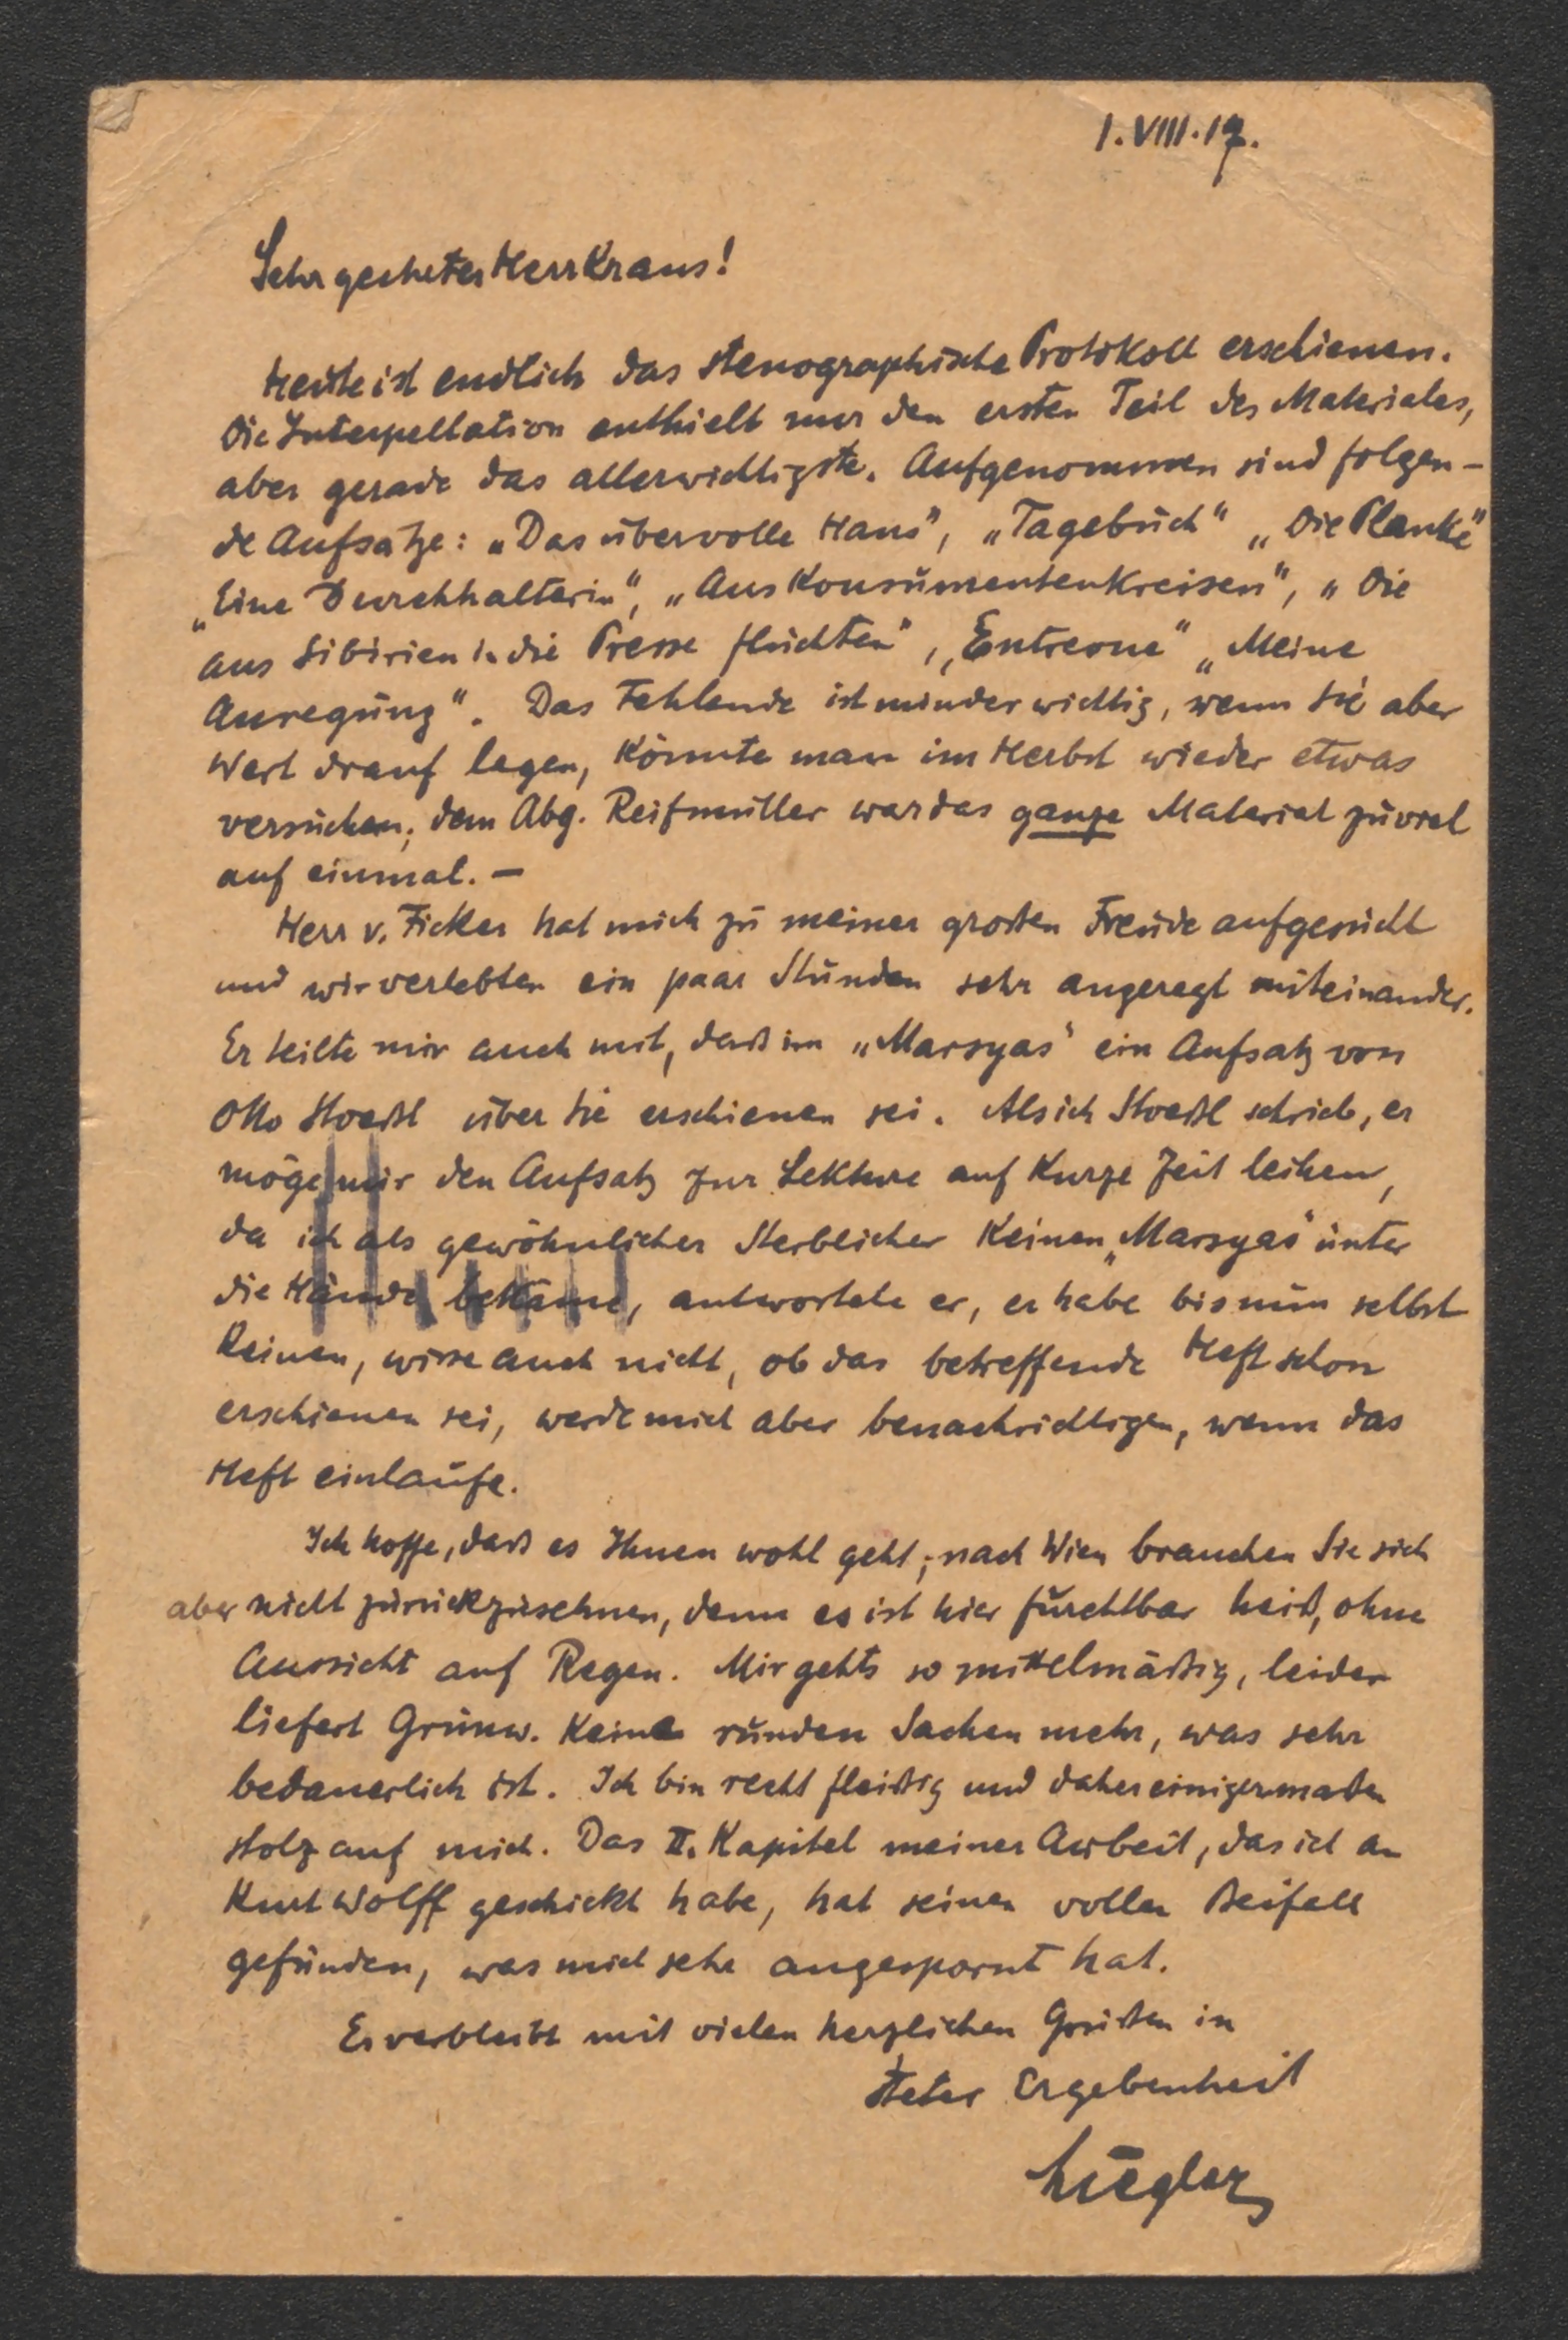 1.VIII.17.
Sehr geehrter Herr Kraus!
Heute ist endlich das stenographische Protokoll erschienen.
Die Interpellation enthielt nur den ersten Teil des Materiales,
aber gerade das allerwichtigste. Aufgenommen sind folgen-
de Aufsätze: „Das übervolle Haus", „Tagebuch" „Die Planke"
„Eine Durchhalterin", „Aus Konsumentenkreisen", „Die
aus Sibirien in die Presse flüchten", „Entreone" „Meine
Anregung". Das Fehlende ist minder wichtig, wenn Sie aber
Wert drauf legen, könnte man im Herbst wieder etwas
versuchen; dem Abg. Reifmüller war das ganze Material zuviel
auf einmal. –
Herr v. Ficker hat mich zu meiner großen Freude aufgesucht
und wir verlebten ein paar Stunden sehr angeregt miteinander.
Er teilte mir auch mit, daß im „Marsyas" ein Aufsatz von
Otto Stoeßl über Sie erschienen sei. Als ich Stoeßl schrieb, er
möge mir den Aufsatz zur Lektüre auf kurze Zeit leihen,
da ich als gewöhnlicher Sterblicher keinen „Marsyas" unter
die Hände bekäme, antwortete er, er habe bis nun selbst
keinen, wisse auch nicht, ob das betreffende Heft schon
erschienen sei, werde mich aber benachrichtigen, wenn das
Heft einlaufe.
Ich hoffe, daß es Ihnen wohl geht; nach Wien brauchen Sie sich
aber nicht zurückzusehnen, denn es ist hier furchtbar heiß, ohne
Aussicht auf Regen. Mir gehts so mittelmäßig, leider
liefert Grünw. keine runden Sachen mehr, was sehr
bedauerlich ist. Ich bin recht fleißig und daher einigermaßen
stolz auf mich. Das II. Kapitel meiner Arbeit, das ich an
Kurt Wolff geschickt habe, hat seinen vollen Beifall
gefunden, was mich sehr angespornt hat.
Es verbleibt mit vielen herzlichen Grüßen in
steter Ergebenheit
Liegler